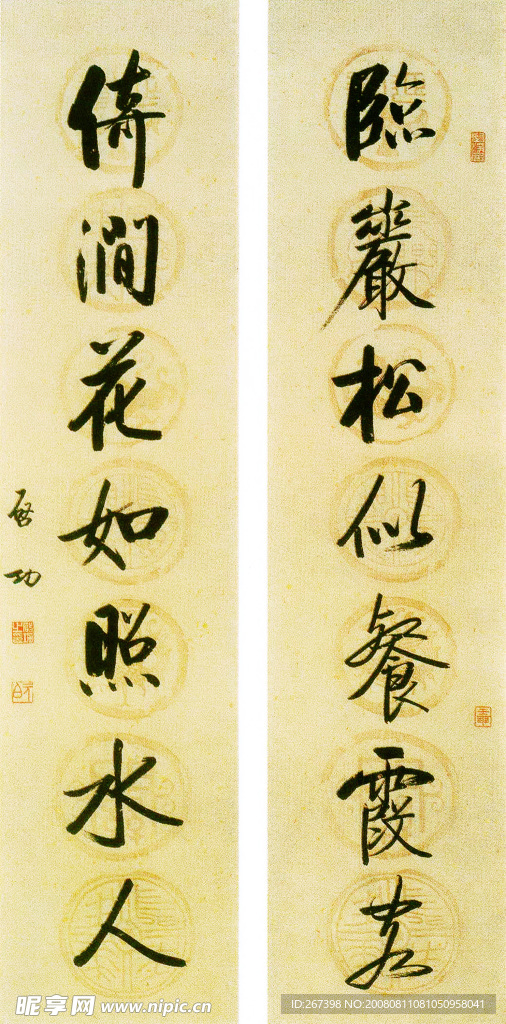 臨巖松似餐霞客
倚澗花如照水人
启功
昵享网 www.nipic.cn
ID:267398 NO:20080811081050958041